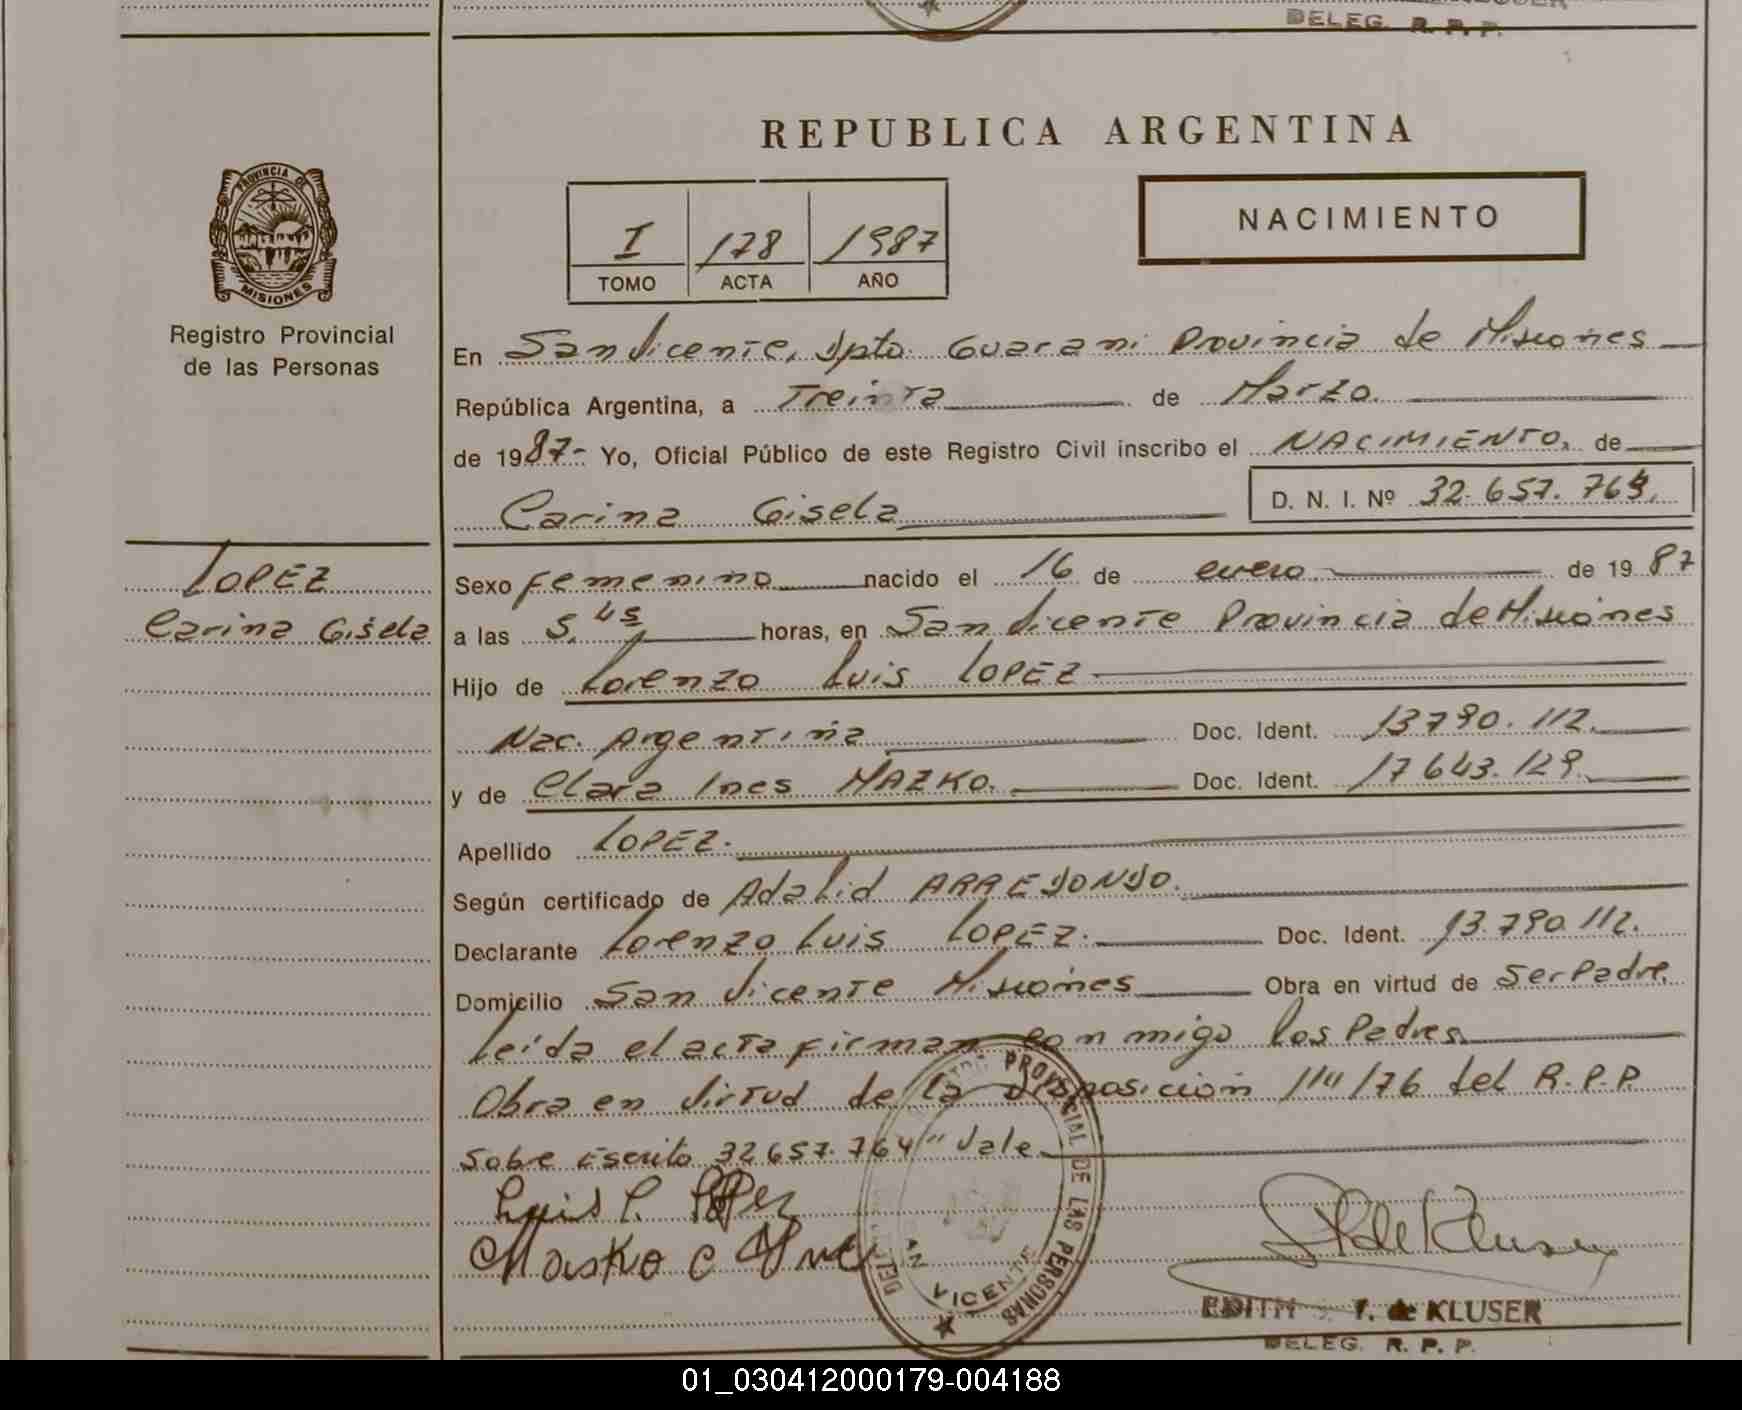 DELEG. R. P. P.
REPUBLICA ARGENTINA
PROVINCIA DE
MISIONES
I 178 1987
TOMO ACTA AÑO
NACIMIENTO
Registro Provincial
de las Personas
En San Vicente, Dpto. Guarani Provincia de Misiones
República Argentina, a Treinta de Marzo.
de 1987- Yo, Oficial Público de este Registro Civil inscribo el NACIMIENTO, de
Carina Gisela D. N. I. Nº 32.657.764.
LOPEZ
Carina Gisela
Sexo Femenino nacido el 16 de enero. de 1987
a las 5,45 horas, en San Vicente Provincia de Misiones
Hijo de Lorenzo Luis LOPEZ
Nac. Argentina Doc. Ident. 13790.112.
y de Clara Ines MAZKO. Doc. Ident. 17643.129.
Apellido LOPEZ.
Según certificado de Adalid ARREDONDO.
Declarante Lorenzo Luis LOPEZ. Doc. Ident. 13.790.112.
Domicilio San Vicente Misiones Obra en virtud de Ser Padre.
Leída el acta firman conmigo los Padres.
Obra en virtud de la disposición 111/76 del R.P.P.
Sobre Escrito 32657.764" Vale.
Luis L. Lopez
Masko C
PROVINCIAL DE LAS PERSONAS
SAN VICENTE
de Kluser
EDITH T. de KLUSER
DELEG. R. P. P.
01_030412000179-004188